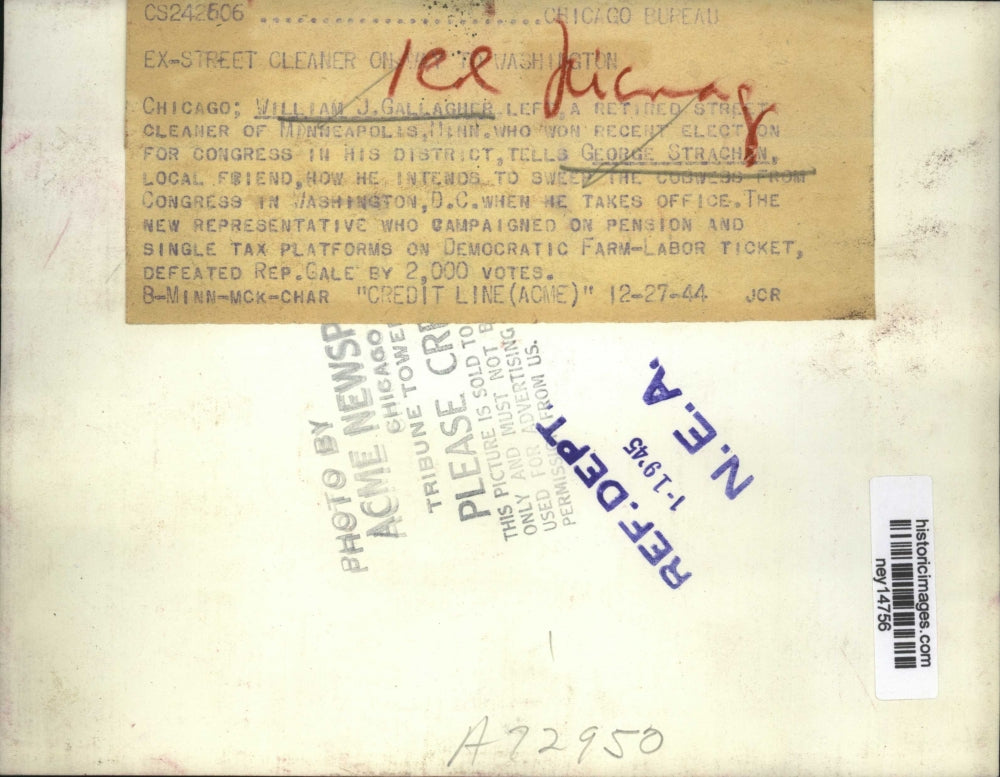 CS242506 ..............................CHICAGO BUREAU
EX-STREET CLEANER ON WAY TO WASHINGTON
CHICAGO; WILLIAM J.GALLAGHER LEFT,A RETIRED STREET
CLEANER OF MINNEAPOLIS,MINN.WHO WON RECENT ELECTION
FOR CONGRESS IN HIS DISTRICT,TELLS GEORGE STRACHAN,
LOCAL FRIEND,HOW HE INTENDS TO SWEEP THE COBWEBS FROM
CONGRESS IN WASHINGTON,D.C.WHEN HE TAKES OFFICE.THE
NEW REPRESENTATIVE WHO CAMPAIGNED ON PENSION AND
SINGLE TAX PLATFORMS ON DEMOCRATIC FARM-LABOR TICKET,
DEFEATED REP.GALE BY 2,000 VOTES.
8-MINN-MCK-CHAR "CREDIT LINE(ACME)" 12-27-44 JCR
PHOTO BY
ACME NEWSP
CHICAGO
TRIBUNE TOWE
PLEASE CRE
THIS PICTURE IS SOLD TO
ONLY AND MUST NOT B
USED FOR ADVERTISING
PERMISS FROM US.
REF. DEPT
1-19'45
N.E.A.
historicimages.com
ney14756
A72950